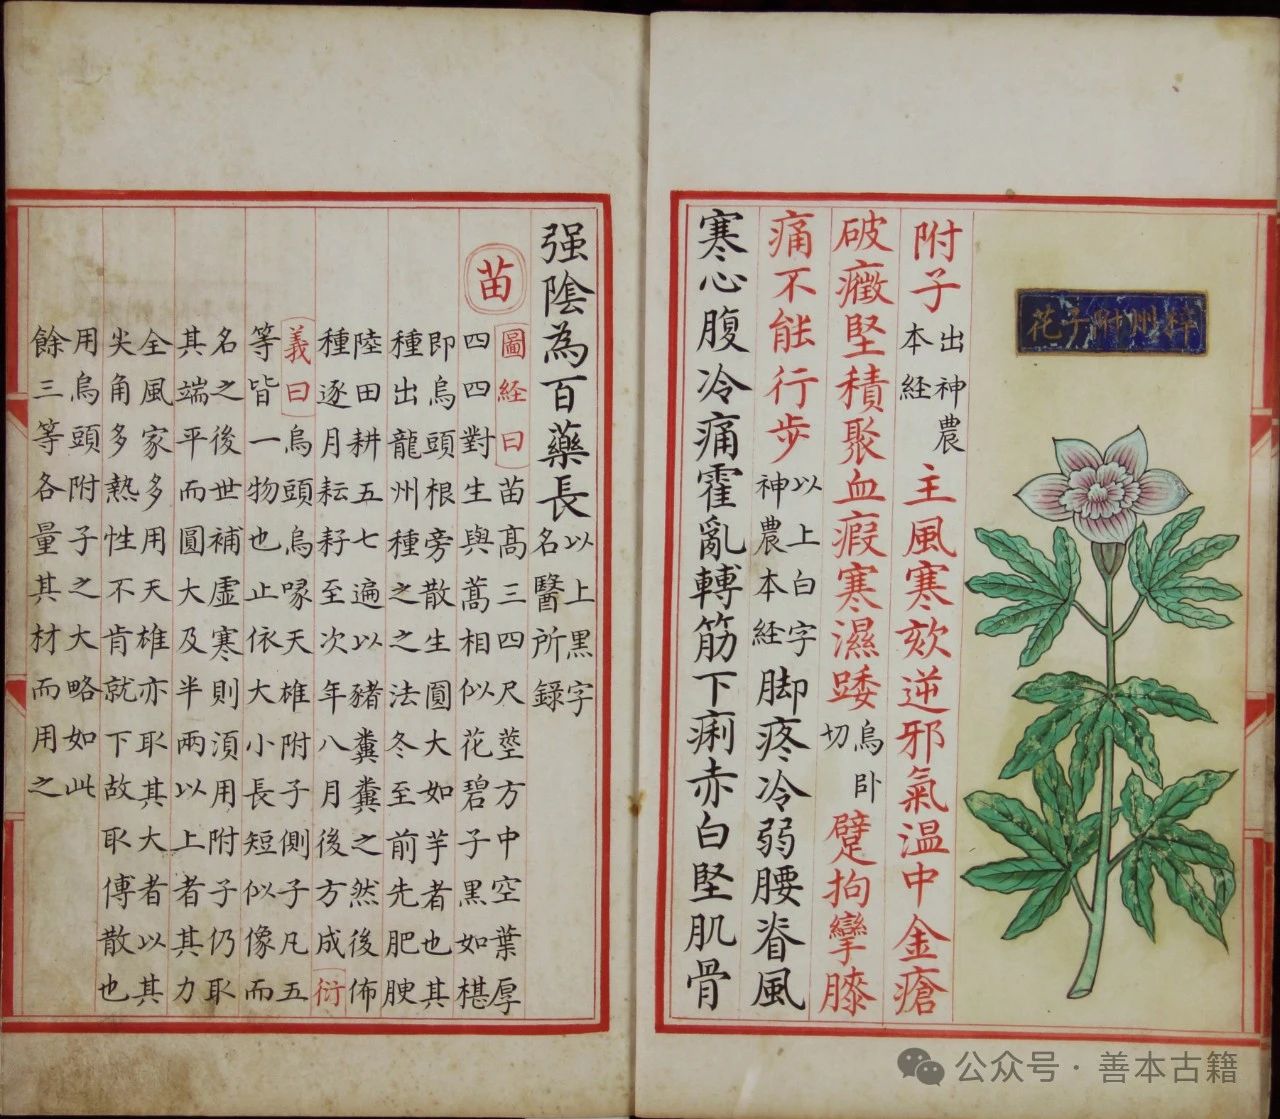 梓州附子花
附子出神農本経主風寒欬逆邪氣溫中金瘡
破癥堅積聚血瘕寒濕踒烏卧切躄拘攣膝
痛不能行步以上白字神農本経脚疼冷弱腰脊風
寒心腹冷痛霍亂轉筋下痢赤白堅肌骨
强陰為百藥長以上黑字名醫所錄
苗
圖経曰苗高三四尺莖方中空葉厚
四四對生與蒿相似花碧子黑如椹
即烏頭根旁散生圓大如芋者也其
種出龍州種之之法冬至前先肥腴
陸田耕五七遍以豬糞糞之然後佈
種逐月耘耔至次年八月後方成衍
義曰烏頭烏喙天雄附子側子凡五
等皆一物也止依大小長短似像而
名之後世補虛寒則須用附子仍取
其端平而圓大及半兩以上者其力
全風家多用天雄亦取其大者以其
尖角多熱性不肯就下故取傅散也
用烏頭附子之大略如此
餘三等各量其材而用之
公众号·善本古籍